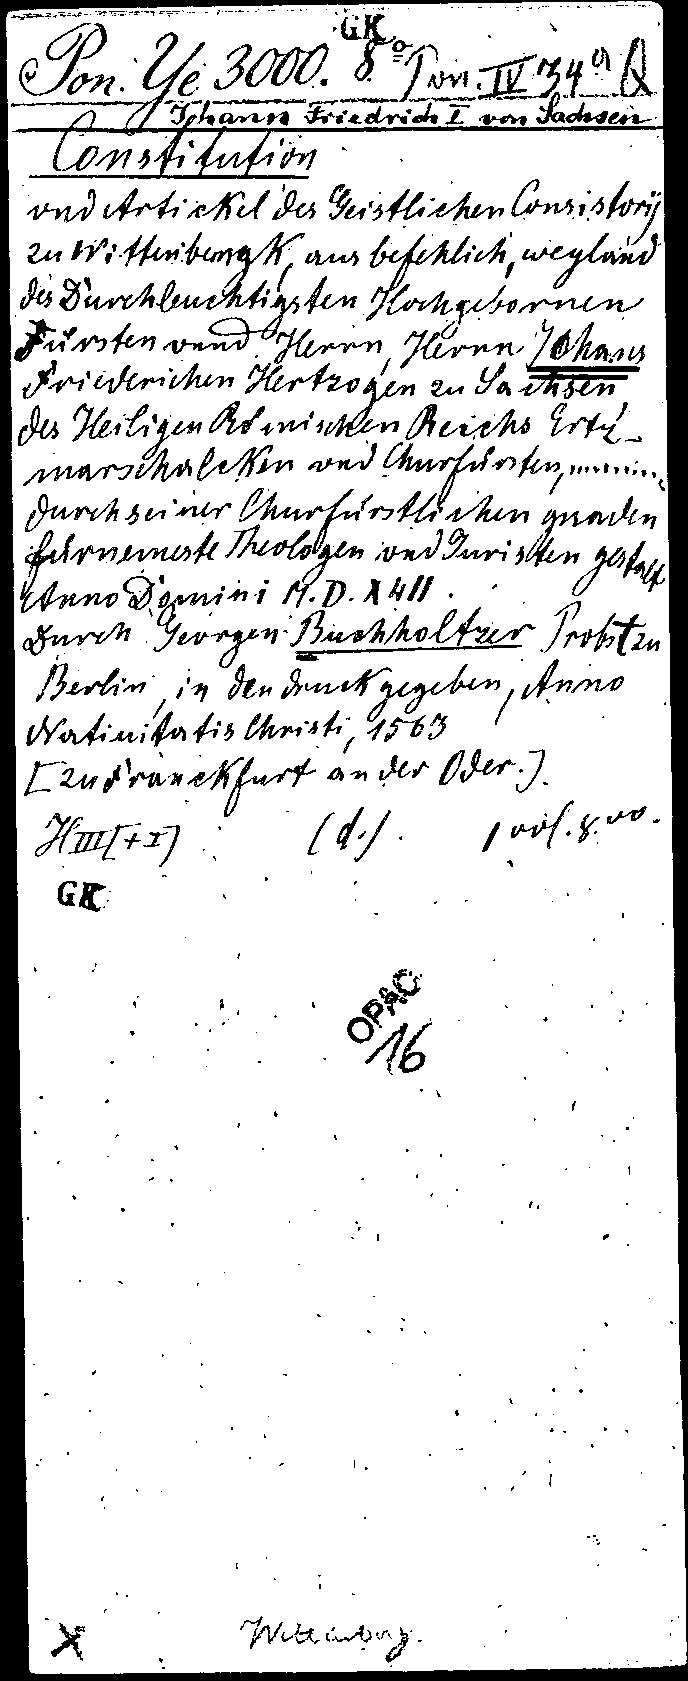 GK
Pon. Ye 3000. 8º Pon. IV 34ª Q
Johann Friedrich I von Sachsen
Constitution
vnd Artickel des Geistlichen Consistorij
zu Wittenbergk, aus befehlich, weyland
des Durchleuchtigsten Hochgebornen
Fürsten vnnd Herrn, Herrn Johans
Friederichen Hertzogen zu Sachsen,
des Heiligen Römischen Reichs Ertz-
marschalcken vnd Churfürsten,
durch seiner Churfürstlichen gnaden
fürnemeste Theologen vnd Juristen gestalt
Anno Domini M.D.X4II.
Durch Georgen Buchholtzer Probst zu
Berlin, in den druck gegeben, Anno
Natiuitatis Christi, 1563
[zu Franckfurt an der Oder.]
H III [+ I] (d.) 1 vol. 8.vo.
GK
OPAC
16
X Wittenberg.